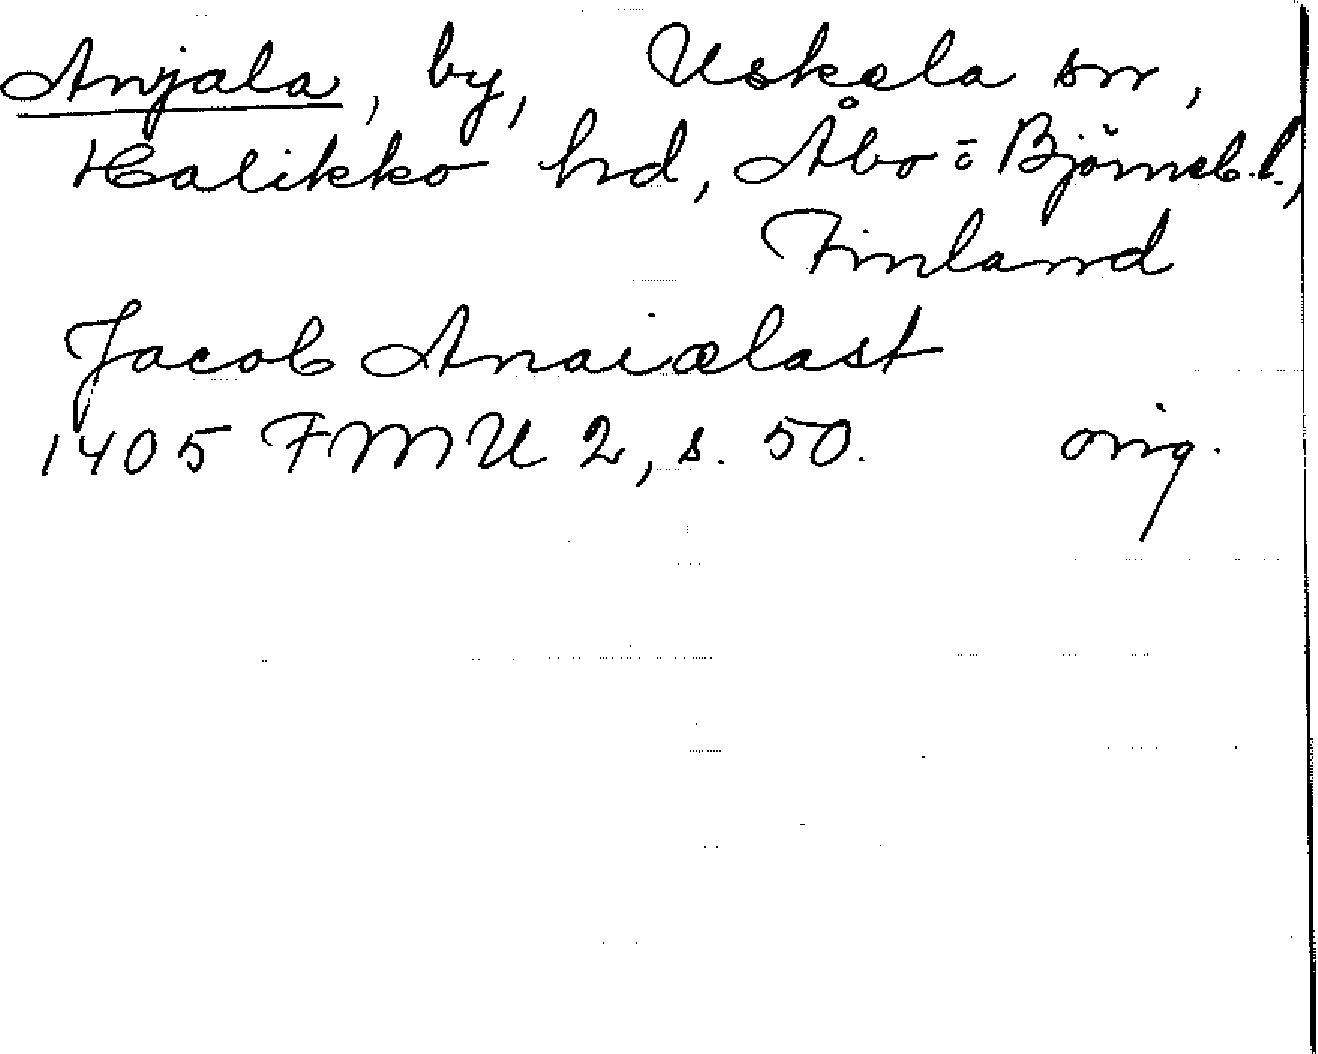 Anjala, by, Uskela sn,
Halikko hd, Åbo o Björneb. l.,
Finland
Jacob Anaiælast
1405 FMU 2, s. 50. orig.